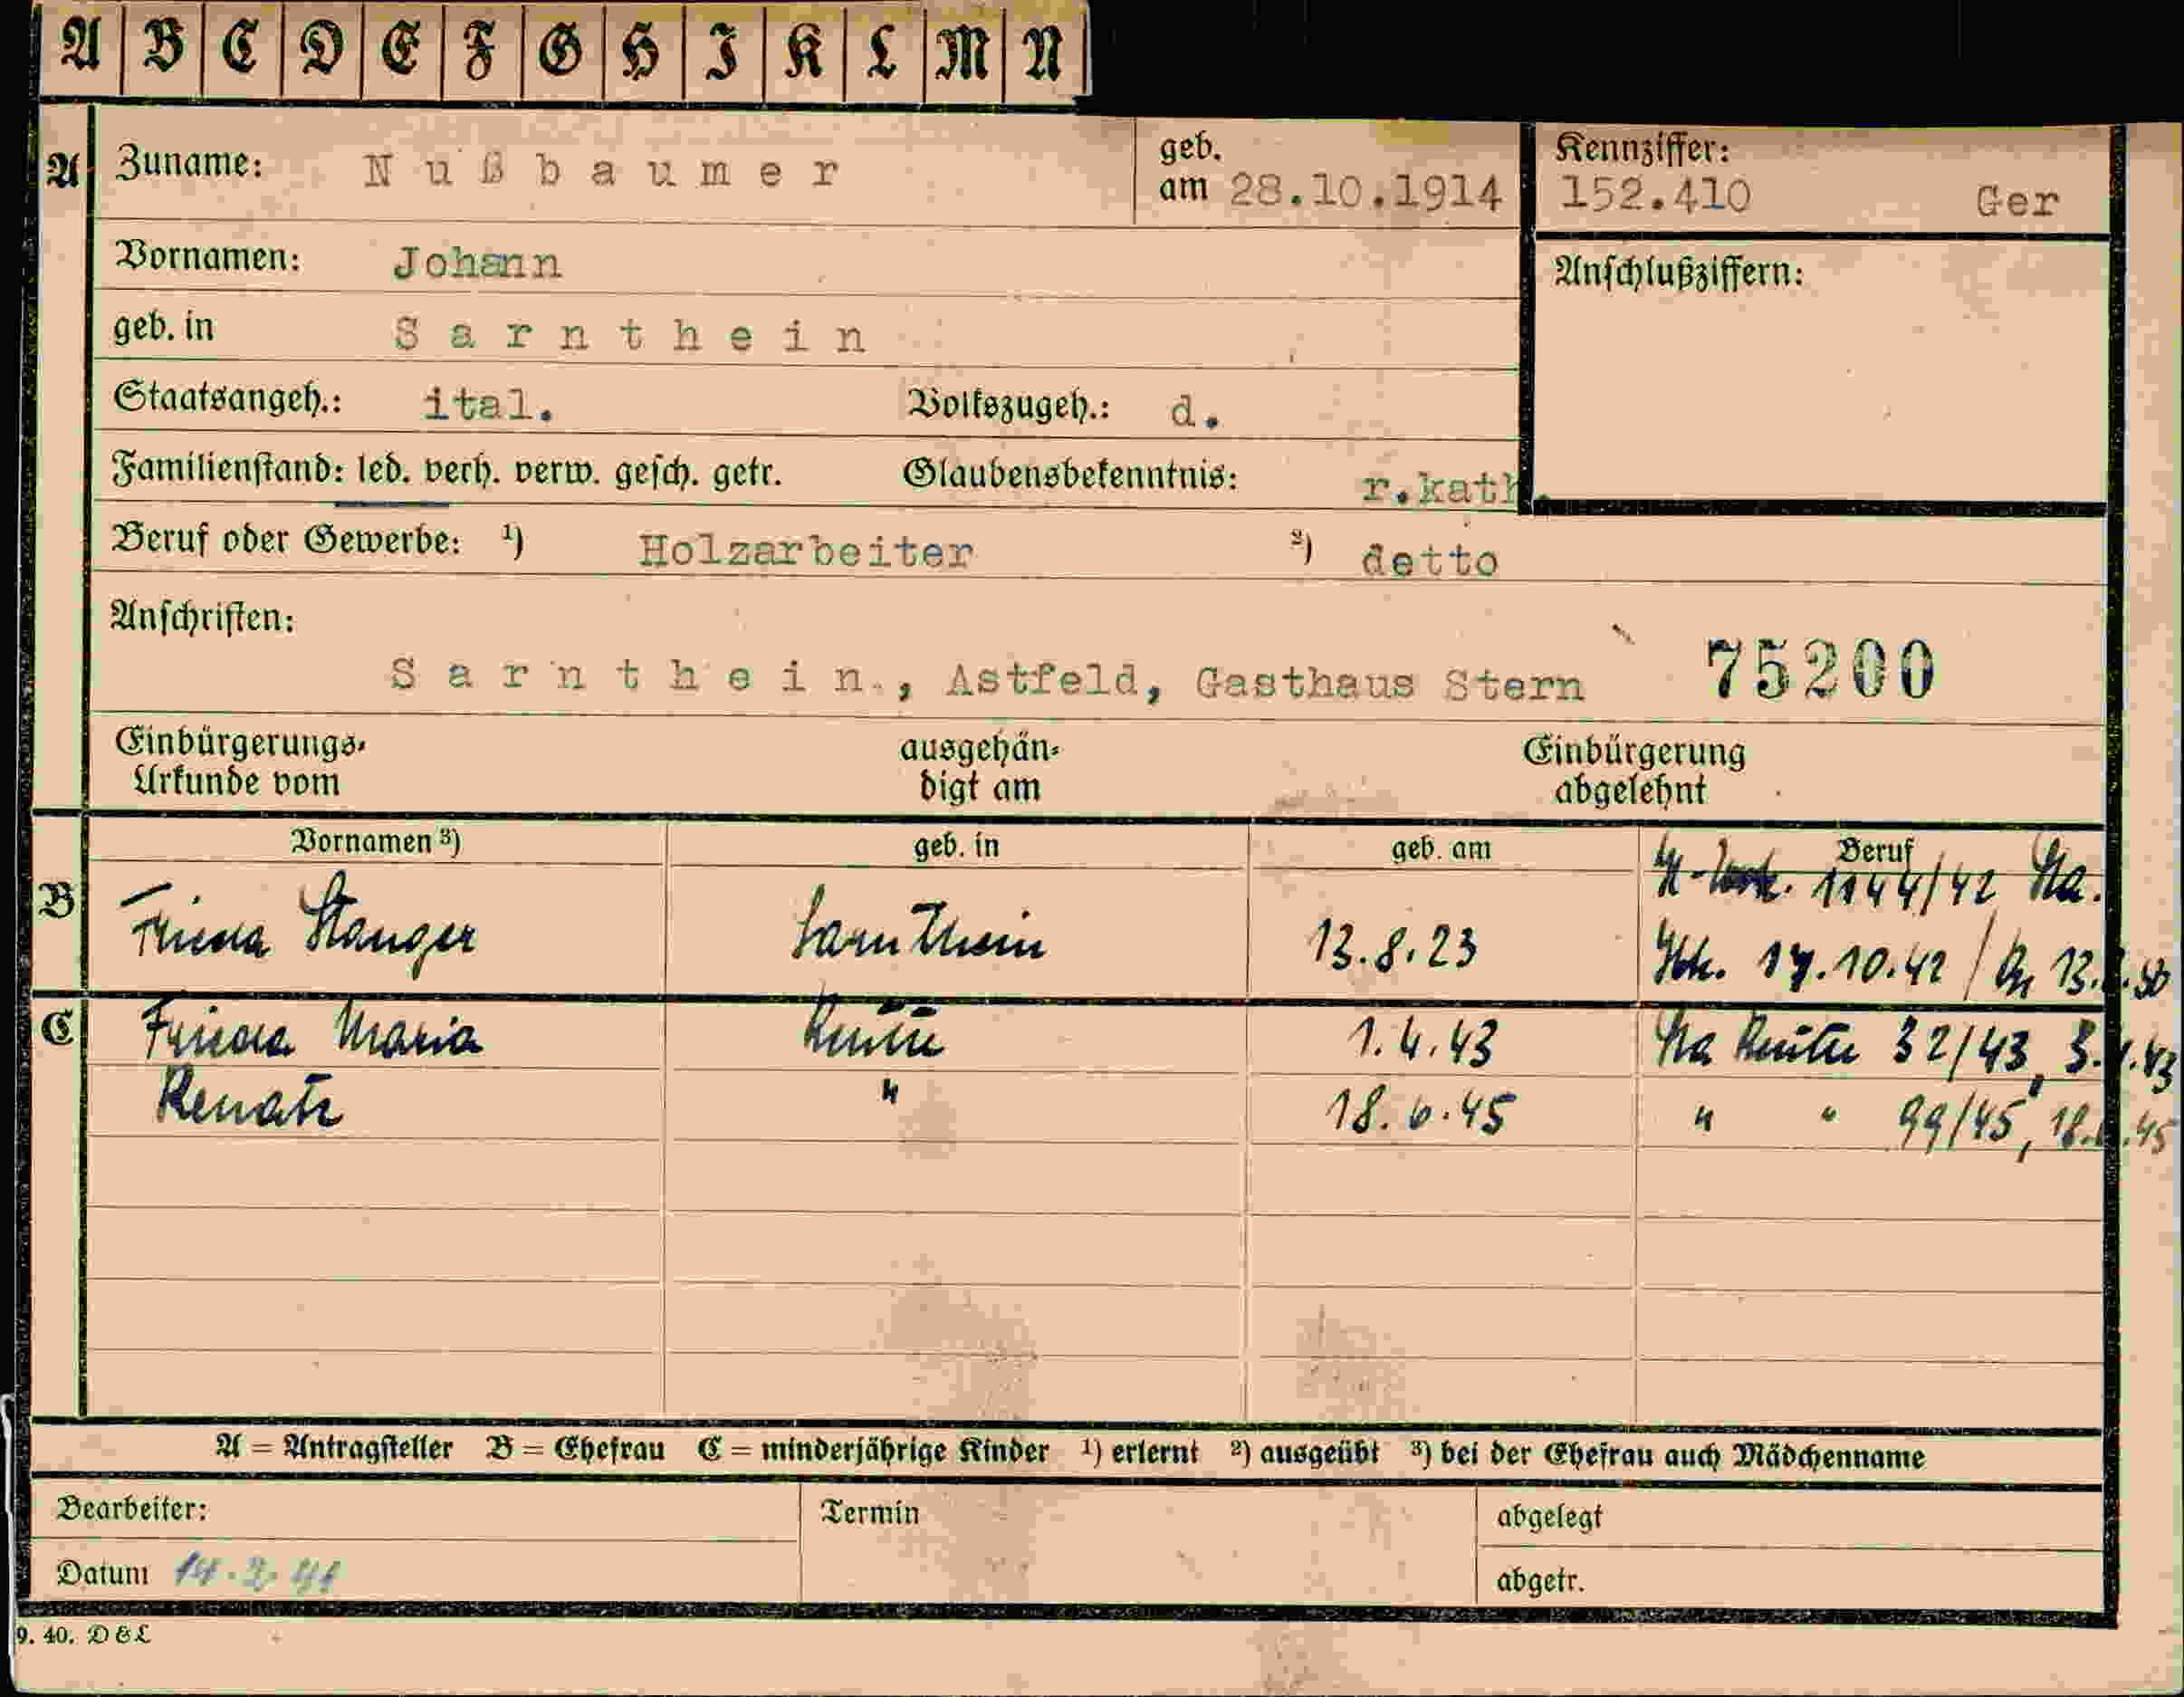 A B C D E F G H I K L M N
A Zuname: Nußbaumer geb. am 28.10.1914 Kennziffer: 152.410 Ger
Vornamen: Johann Anschlußziffern:
geb. in Sarnthein
Staatsangeh.: ital. Volkszugeh.: d.
Familienstand: led. verh. verw. gesch. getr. Glaubensbekenntnis: r.kath.
Beruf oder Gewerbe: 1) Holzarbeiter 2) detto
Anschriften:
Sarnthein, Astfeld, Gasthaus Stern 75200
Einbürgerungs- ausgehän- Einbürgerung
Urkunde vom digt am abgelehnt
Vornamen 3) geb. in geb. am Beruf
1144/42 Sta.
B Frieda Stanger Sarnthein 13.8.23 17.10.42 /
C Frieda Maria Reutte 1.4.43 Sta Reutte 32/43,
Renate " 18.6.45 " " 99/45,
A = Antragsteller B = Ehefrau C = minderjährige Kinder 1) erlernt 2) ausgeübt 3) bei der Ehefrau auch Mädchenname
Bearbeiter: Termin abgelegt
Datum 14.2.41 abgetr.
9. 40. D&L